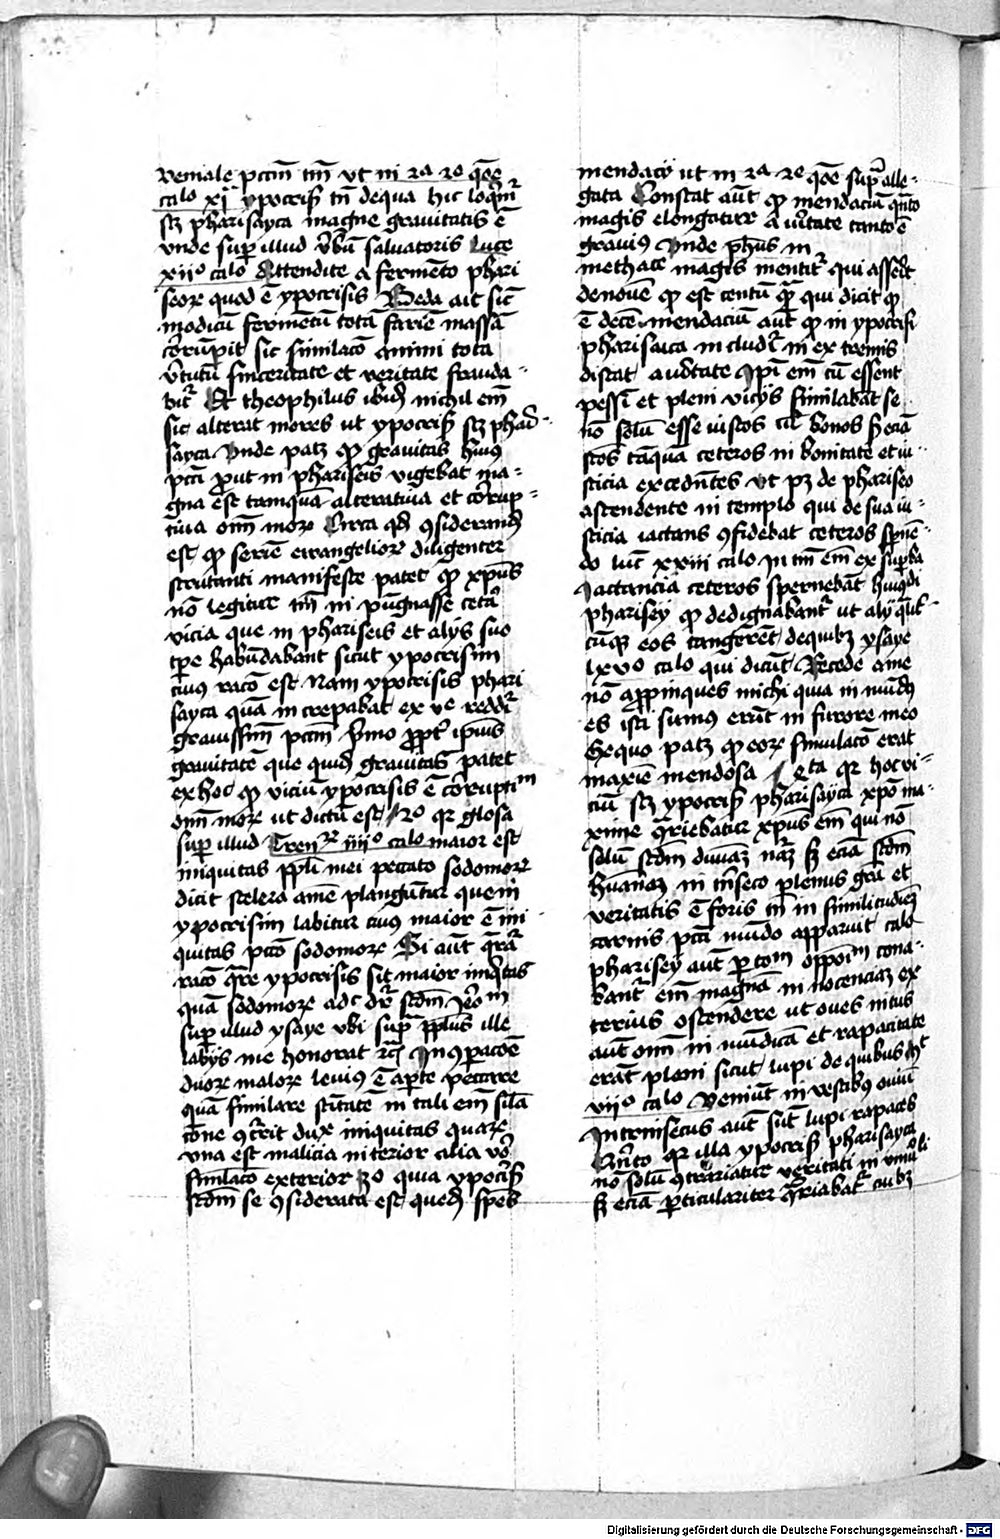 veniale pccm tm vt in 2a 2e qoe
calo xi ypocris tn de qua hic loqmr
scz pharisayca magne grauitatis e
vnde sup illud vbu saluatoris luce
xiio calo Attendite a fermeto phari
seor quod e ypocrisis Beda ait sic
modicu fermetu tota farie massa
corupit sic similaco animi tota
vtutu sinceritate et veritate frauda-
bit Et theophilus ibid nichil em
sic alterat mores ut ypocris scz phari-
sayca Vnde patz qp grauitas huius
pcti put in phariseis vigebat ma-
gna est tamqua alteratiua et corup-
tiua omi mor Circa qd gsiderand
est qp serie ewangelior diligenter
scrutanti manifeste patet qp xpus
no legitur tm in pugnasse ceta
vicia que in phariseis et alys suo
tpe habundabant sicut ypocrisim
cuius raco est Nam ypocrisis phari
sayca qua increpabat ex ve reddit
grauissim pccm primo ppt ipius
grauitate que quid grauitas patet
ex hoc qp viciu ypocrisis e coruptim
omi mor ut dictu est 2o qr glosa
sup illud Tren iiiio calo maior est
iniquitas ppli mei peccato sodomor
dicit scelera anie planguntur que in
ypocrisim labitur cuius maior e ini
quitas pcto sodomor Si aut qrat
raco qre ypocrisis sit maior iniqtas
qua sodomor adc dr scdm iero
sup illud ysaye vbi sup pplus ille
labys me honorat rc In gpacoe
duor malor leuius e apte peccare
qua similare scitate in tali em sila
cone gcrit dux iniquitas quar
vna est malicia interior alia vo
similaco exterior 3o quia ypocris
scdm se gsiderata est qued spes
mendacy ut in 2a 2e qoe supa alle-
gata Constat aut qp mendaciu qnto
magis elongatur a vitate tanto e
grauius Vnde phus in
metha magis mentit qui asserit
denoue qp est centu qua qui dicit qp
e dece mendaciu aut qp in ypocrisi
pharisaica includit in extremis
distat a vitate Ipi em cu essent
pessi et pleni vicys similabat se
no solu esse iustos bonos s ecia
scos taqua ceteros in bonitate et iu-
sticia excedntes vt pz de phariseo
ascendente in templo qui de sua iu-
sticia iactans gfidebat ceteros spne-
do luc xviii calo In tm em ex supba
Iactancia ceteros spernebant huiusdi
pharisey qp dedignabant ut aly
eos tangeret de quibz ysaye
lxvo calo qui dicut Recede a me
no appinques michi quia in mundus
es isti fumus erut in furore meo
Ex quo patz qp eor simulaco erat
maxie mendosa qr hoc vi-
ciu scz ypocris pharisayca xpo ma-
xime griebatur xpus em qui no
solu scdm diuina natz s ecia scdm
humana in triseco plenus gra et
veritatis e foris tn in similitudiez
carnis pcti mundo apparuit calo
pharisey aut p tom oppoim cona-
bant em magna innocencia ex
terius ostendere ut oues intus
aut omi inmundica et rapacitate
erat pleni sicut lupi de quibus mt
viio calo Veniut in vestibus ouiu
Intrinsecus aut sut lupi rapaces
qr illa ypocris pharisayca
no solu gtrariatur veritati in vniuali
s ecia pticulariter griabat cuibz
Digitalisierung gefördert durch die Deutsche Forschungsgemeinschaft - DFG